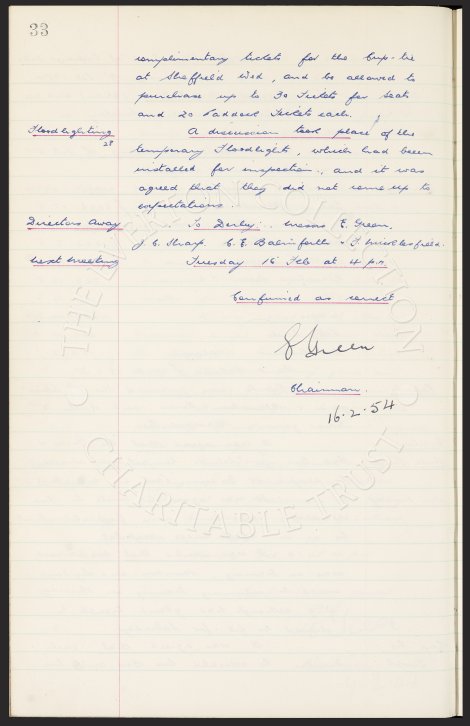 33
complimentary tickets for the Cup-tie
at Sheffield Wed, and be allowed to
purchase up to 30 Tickets for seats
and 20 Paddock Tickets each.
Floodlighting A discussion took place of the
28 temporary Floodlights, which had been
installed for inspection, and it was
agreed that they did not come up to
expectations.
Directors Away To Derby: Messrs E. Green,
J. C. Sharp, C. E. Balmforth & T. Micklesfield.
Next Meeting Tuesday 16 Feb at 4 p.m
Confirmed as correct
E Green
Chairman.
16.2.54
THE EVERTON COLLECTION
CHARITABLE TRUST